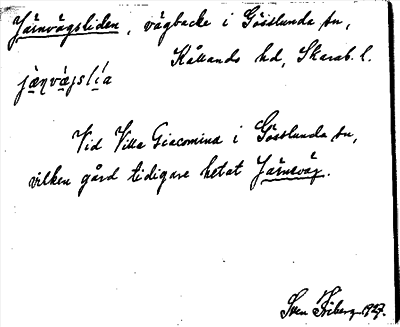 Järnvägsliden, vägbacke i Gösslunda sn,
Kållands hd, Skarab. l.
jæ̣ṇvạ̈gslía
Vid Villa Giacomina i Gösslunda sn,
vilken gård tidigare hetat Järnväg.
Sven Friberg 1927.